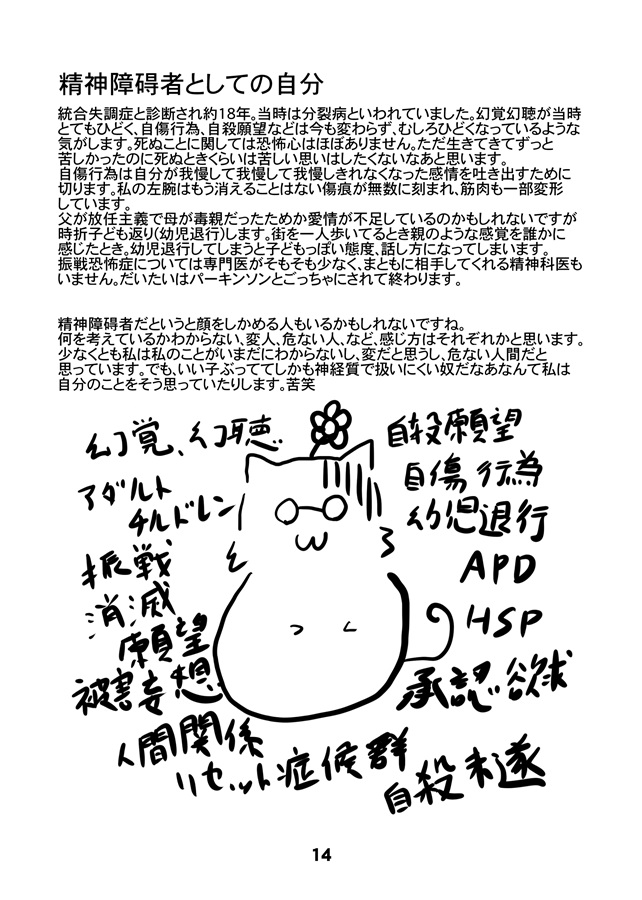 精神障碍者としての自分
統合失調症と診断され約18年。当時は分裂病といわれていました。幻覚幻聴が当時
とてもひどく、自傷行為、自殺願望などは今も変わらず、むしろひどくなっているような
気がします。死ぬことに関しては恐怖心はほぼありません。ただ生きてきてずっと
苦しかったのに死ぬときくらいは苦しい思いはしたくないなあと思います。
自傷行為は自分が我慢して我慢して我慢しきれなくなった感情を吐き出すために
切ります。私の左腕はもう消えることはない傷痕が無数に刻まれ、筋肉も一部変形
しています。
父が放任主義で母が毒親だったためか愛情が不足しているのかもしれないですが
時折子ども返り(幼児退行)します。街を一人歩いてるとき親のような感覚を誰かに
感じたとき。幼児退行してしまうと子どもっぽい態度、話し方になってしまいます。
振戦恐怖症については専門医がそもそも少なく、まともに相手してくれる精神科医も
いません。だいたいはパーキンソンとごっちゃにされて終わります。
精神障碍者だというと顔をしかめる人もいるかもしれないですね。
何を考えているかわからない、変人、危ない人、など、感じ方はそれぞれかと思います。
少なくとも私は私のことがいまだにわからないし、変だと思うし、危ない人間だと
思っています。でも、いい子ぶっててしかも神経質で扱いにくい奴だなあなんて私は
自分のことをそう思っていたりします。苦笑
幻覚、幻聴
アダルト
チルドレン
振戦
消滅
願望
被害妄想
人間関係
リセット症候群
自殺願望
自傷行為
幼児退行
APD
HSP
承認欲求
自殺未遂
14